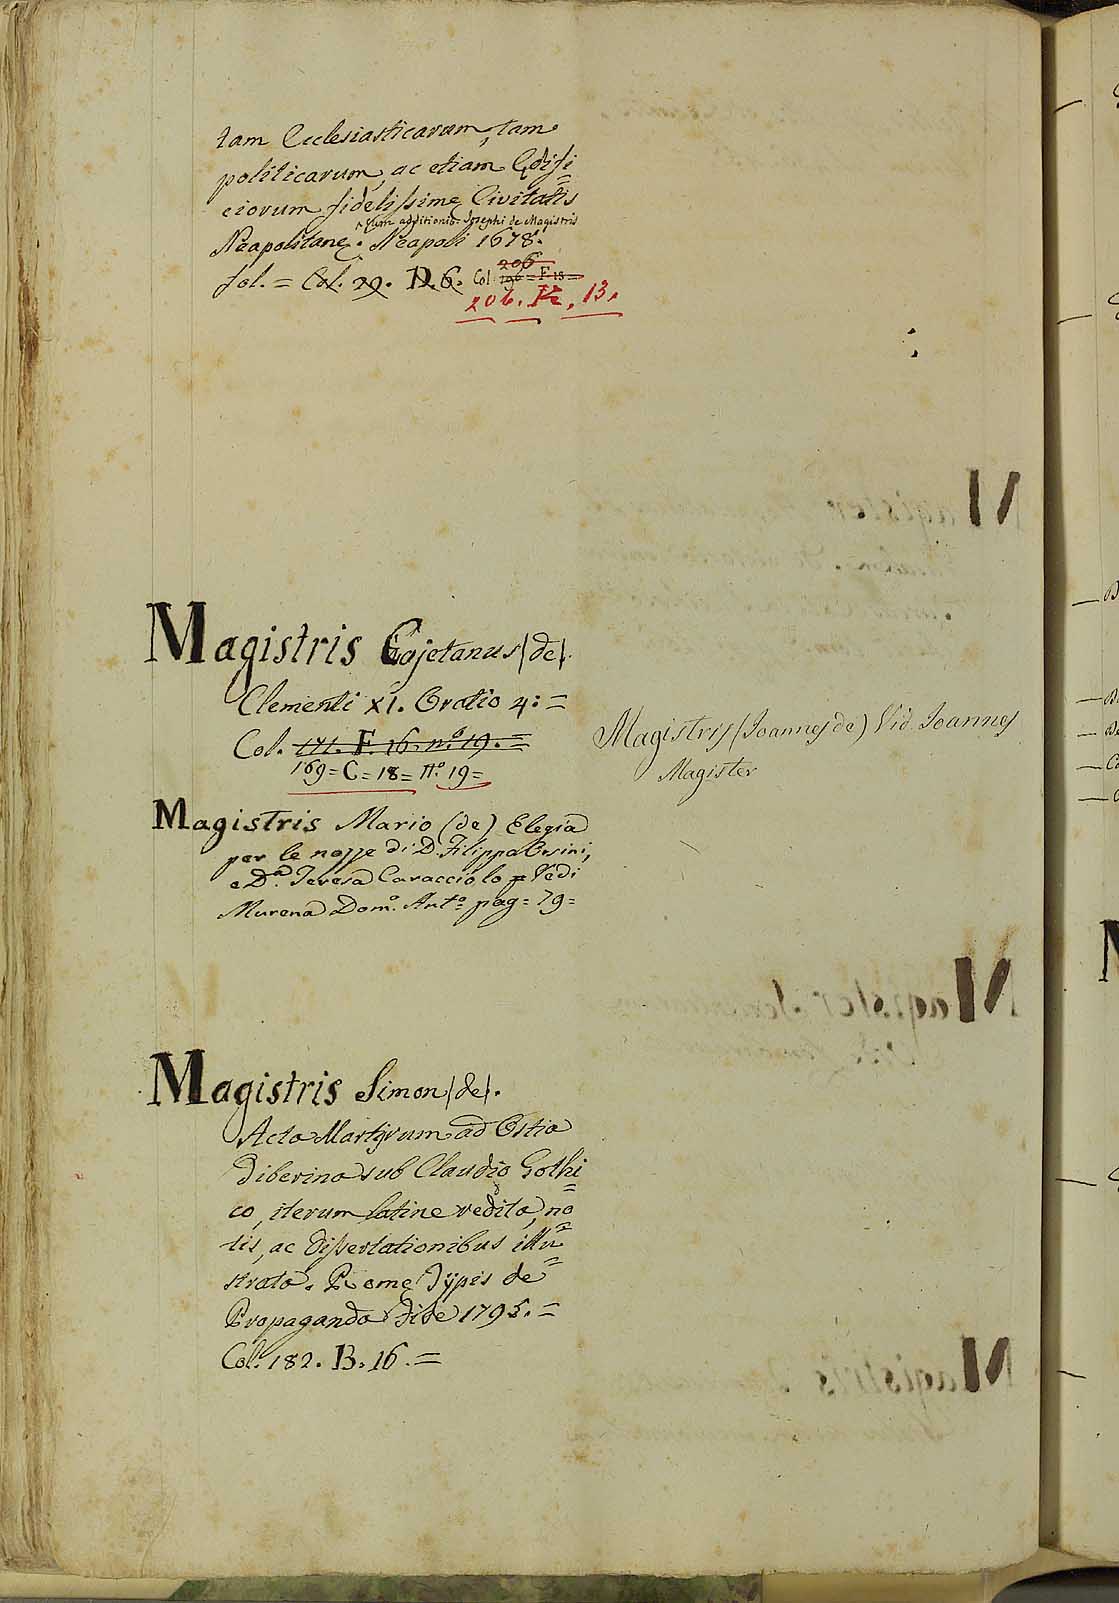 tam Ecclesiasticarum, tam
politicarum, ac etiam Edifi=
ciorum fidelissime Civitatis
cum additionib. Josephi de Magistris
Neapolitane. Neapoli 1678.
fol. = Col. 29. D. 6. Col. 206
196 = F. 13 =
206. 13.
Magistris Cajetanus (de).
Clementi XI. Oratio 4: =
Col. 171. F. 16. n.º 19. =
169 = C = 18 = N.º 19 =
Magistris (Joannes de) Vid. Joannes
Magister
Magistris Mario (de) Elegia
per le nozze di D. Filippo Orsini,
e D.ª Teresa Caracciolo = Vedi
Murena Dom.º Ant.º pag = 79 =
Magistris Simon (de).
Acta Martyrum ad Ostia
Tiberina sub Claudio Gothi=
co, iterum latine reddita, no=
tis, ac dissertationibus illu=
strata. Rome Typis de
Propaganda Fide 1795. =
Col. 182. B. 16. =